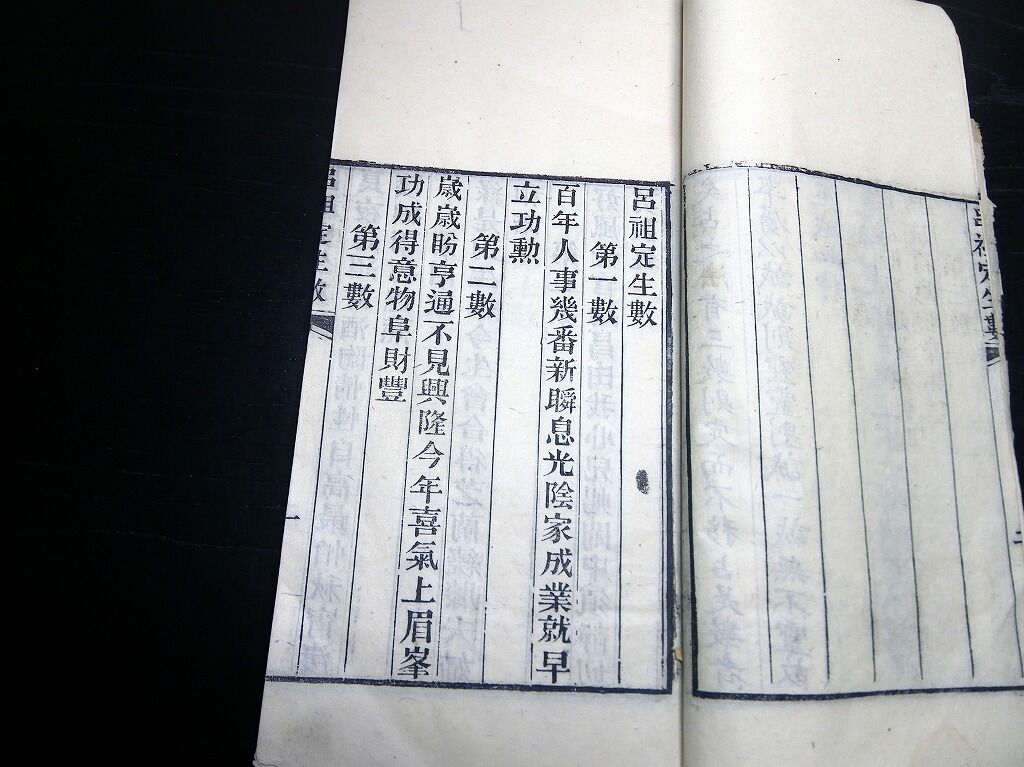 呂祖定生數
第一數
百年人事幾番新瞬息光陰家成業就早
立功勳
第二數
歲歲盼亨通不見興隆今年喜氣上眉峯
功成得意物阜財豐
第三數
呂祖定生數
一